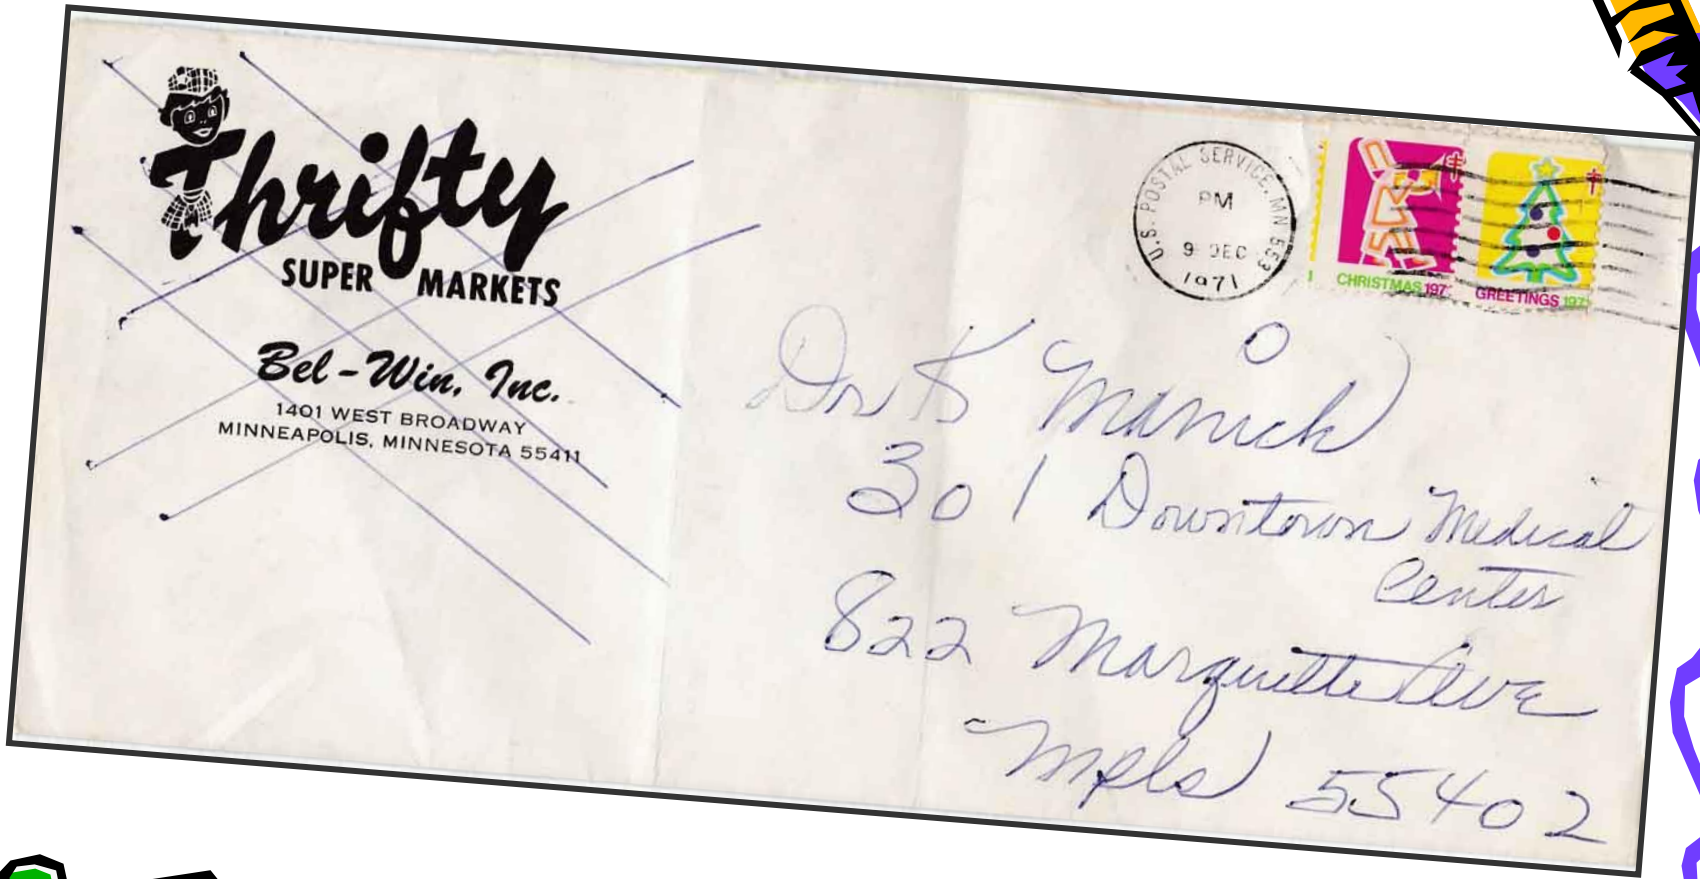 Thrifty
SUPER MARKETS
Bel-Win, Inc.
1401 WEST BROADWAY
MINNEAPOLIS, MINNESOTA 55411
U.S. POSTAL SERVICE, MN 553
PM
9 DEC
1971
CHRISTMAS 197
GREETINGS 197
Dr K Manick
301 Downtown Medical
Center
822 Marquette Ave
Mpls 55402